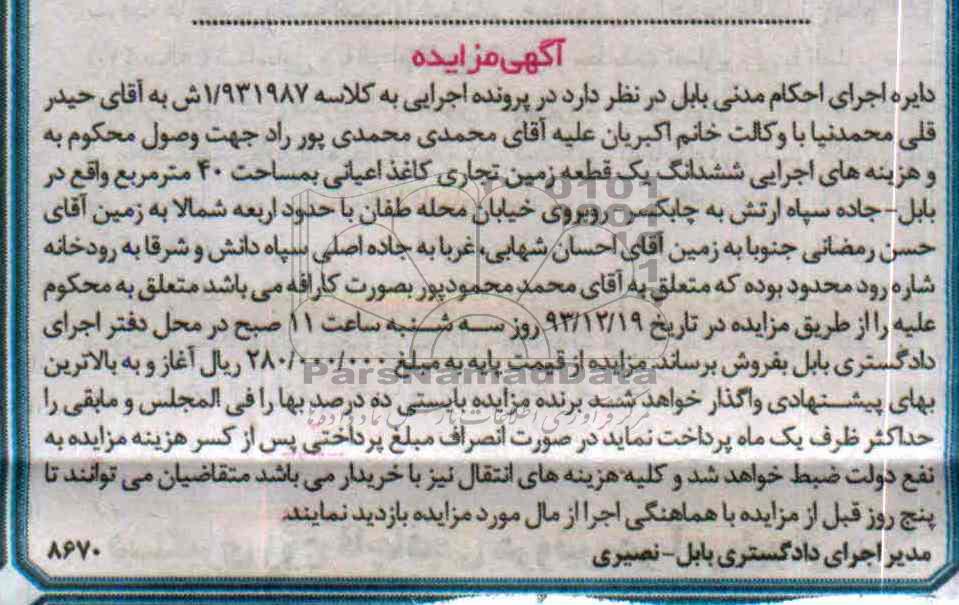 آگهی مزایده
دایره اجرای احکام مدنی بابل در نظر دارد در پرونده اجرایی به کلاسه ۱/۹۳۱۹۸۷ش به آقای حیدر
قلی محمدنیا با وکالت خانم اکبریان علیه آقای محمدی محمدی پور راد جهت وصول محکوم به
و هزینه های اجرایی ششدانگ یک قطعه زمین تجاری کاغذ اعیانی بمساحت ۴۰ مترمربع واقع در
بابل-جاده سپاه ارتش به چابکسر- روبروی خیابان محله طفان با حدود اربعه شمالا به زمین آقای
حسن رمضانی جنوبا به زمین آقای احسان شهابی، غربا به جاده اصلی سپاه دانش و شرقا به رودخانه
شاره رود محدود بوده که متعلق به آقای محمد محمودپور بصورت کارافه می باشد متعلق به محکوم
علیه را از طریق مزایده در تاریخ ۹۳/۱۲/۱۹ روز سه شنبه ساعت ۱۱ صبح در محل دفتر اجرای
دادگستری بابل بفروش برساند. مزایده از قیمت پایه به مبلغ ۲۸۰/۰۰۰/۰۰۰ ریال آغاز و به بالاترین
بهای پیشنهادی واگذار خواهد شد. برنده مزایده بایستی ده درصد بها را فی المجلس و مابقی را
حداکثر ظرف یک ماه پرداخت نماید در صورت انصراف مبلغ پرداختی پس از کسر هزینه مزایده به
نفع دولت ضبط خواهد شد و کلیه هزینه های انتقال نیز با خریدار می باشد متقاضیان می توانند تا
پنج روز قبل از مزایده با هماهنگی اجرا از مال مورد مزایده بازدید نمایند.
مدیر اجرای دادگستری بابل-نصیری
۸۶۷۰
ParsNamadData